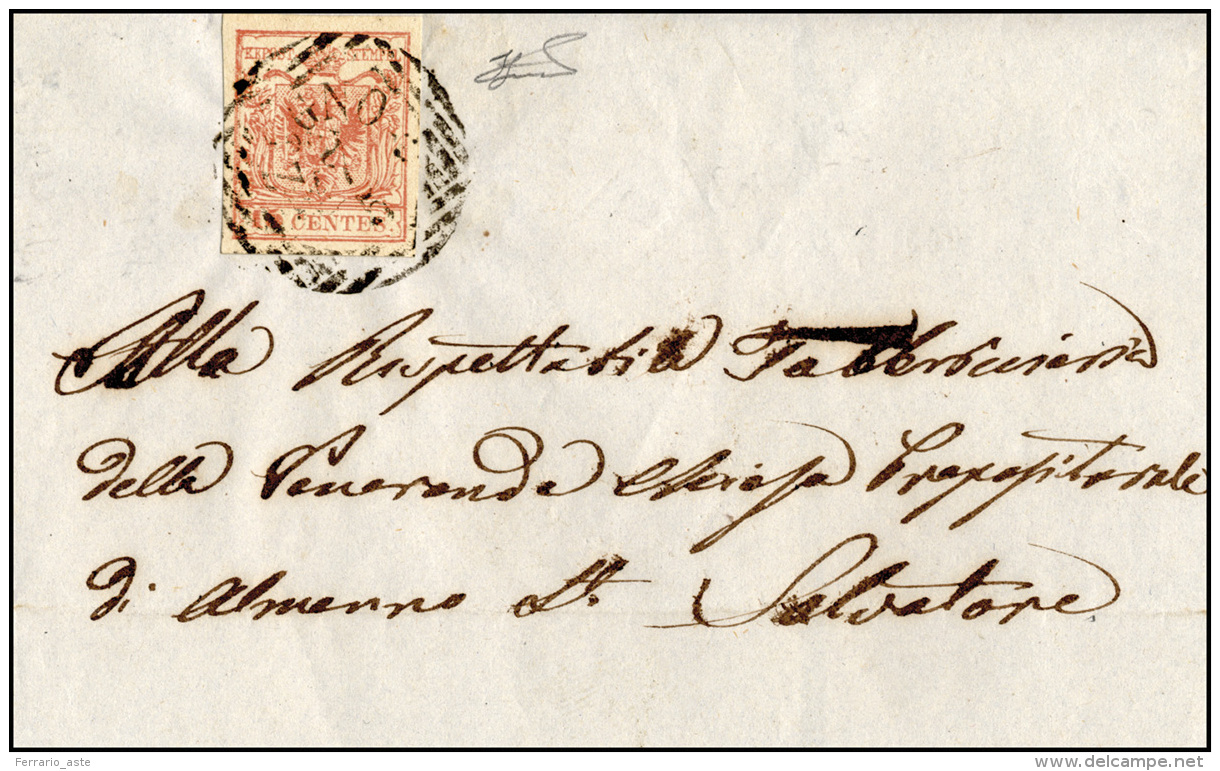 KKPOST STEMPEL
15 CENTES.
Alla Rispettabile Fabbriceria
della Veneranda Chiesa Prepositurale
di Almenno St. Salvatore
Ferrario_aste
delcampe.net